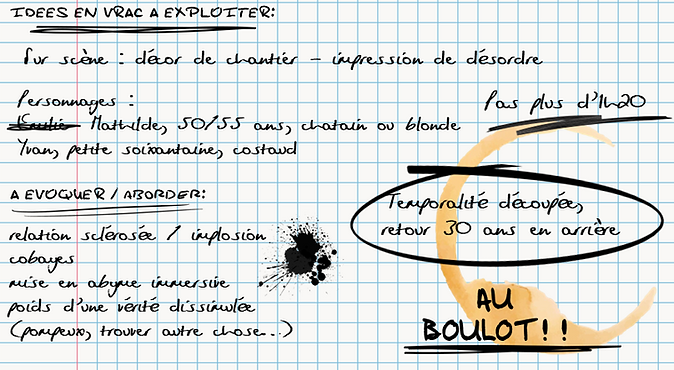 IDEES EN VRAC A EXPLOITER:
Sur scène : décor de chantier – impression de désordre
Personnages :
Mathilde, 50/55 ans, chatain ou blonde
Yvan, petite soixantaine, costaud
Pas plus d'1h20
A EVOQUER / ABORDER:
relation sclérosée / implosion
cobayes
mise en abyme immersive
poids d'une vérité dissimulée
(pompeux, trouver autre chose...)
Temporalité découpée,
retour 30 ans en arrière
AU
BOULOT!!